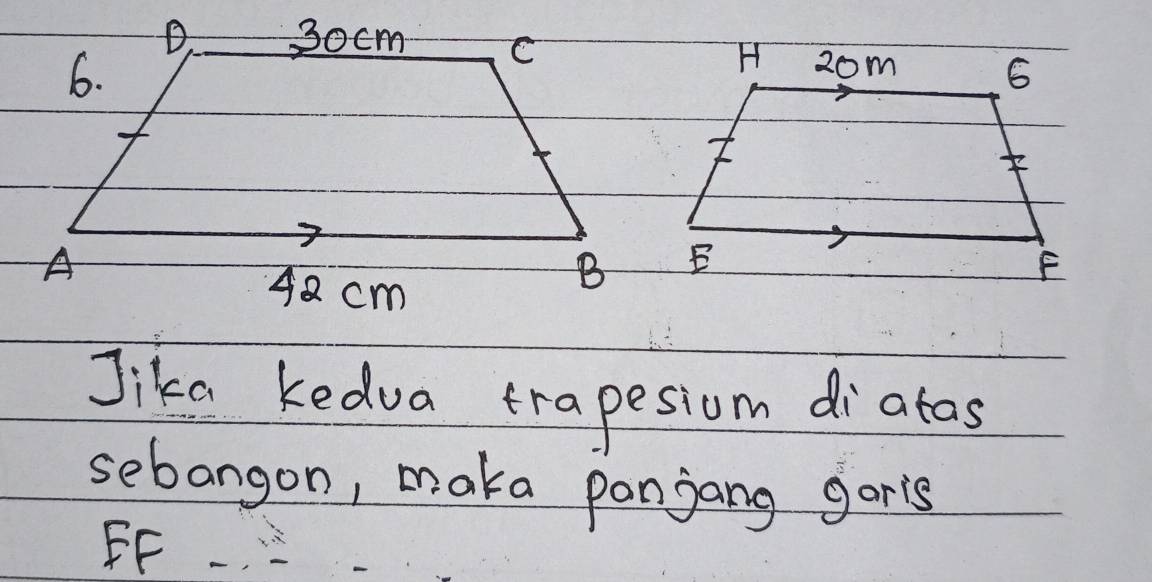 6.
D 30cm C
A B
42 cm
H 20m G
E F
Jika kedua trapesium di atas
sebangon, maka panjang garis
EF ....